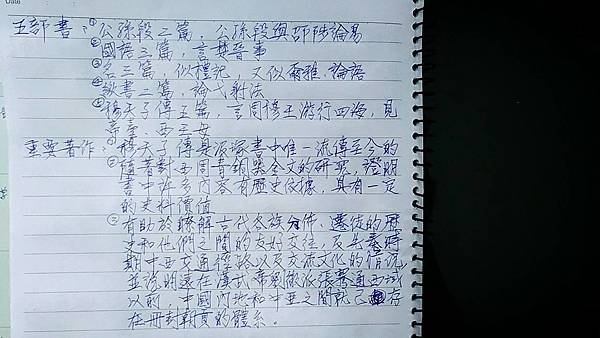 Date
五部書：①公孫段二篇，公孫段與邵陟論易
②國語三篇，言楚晉事
③名三篇，似禮記，又似爾雅、論語
④繳書二篇，論弋射法
⑤穆天子傳五篇，言周穆王游行四海，見
帝臺、西王母
重要著作：①穆天子傳是汲冢書中唯一流傳至今的
隨著對西周青銅器金文的研究，證明
書中許多內容有歷史依據，具有一定
的史料價值
②有助於瞭解古代各族分佈、遷徙的歷
史和他們之間的友好交往，及先秦時
期中西交通徑路以及交流文化的情況
並說明遠在漢武帝劉徹派張騫通西域
以前，中國內地和中亞之間就已存
在冊封朝貢的體系。